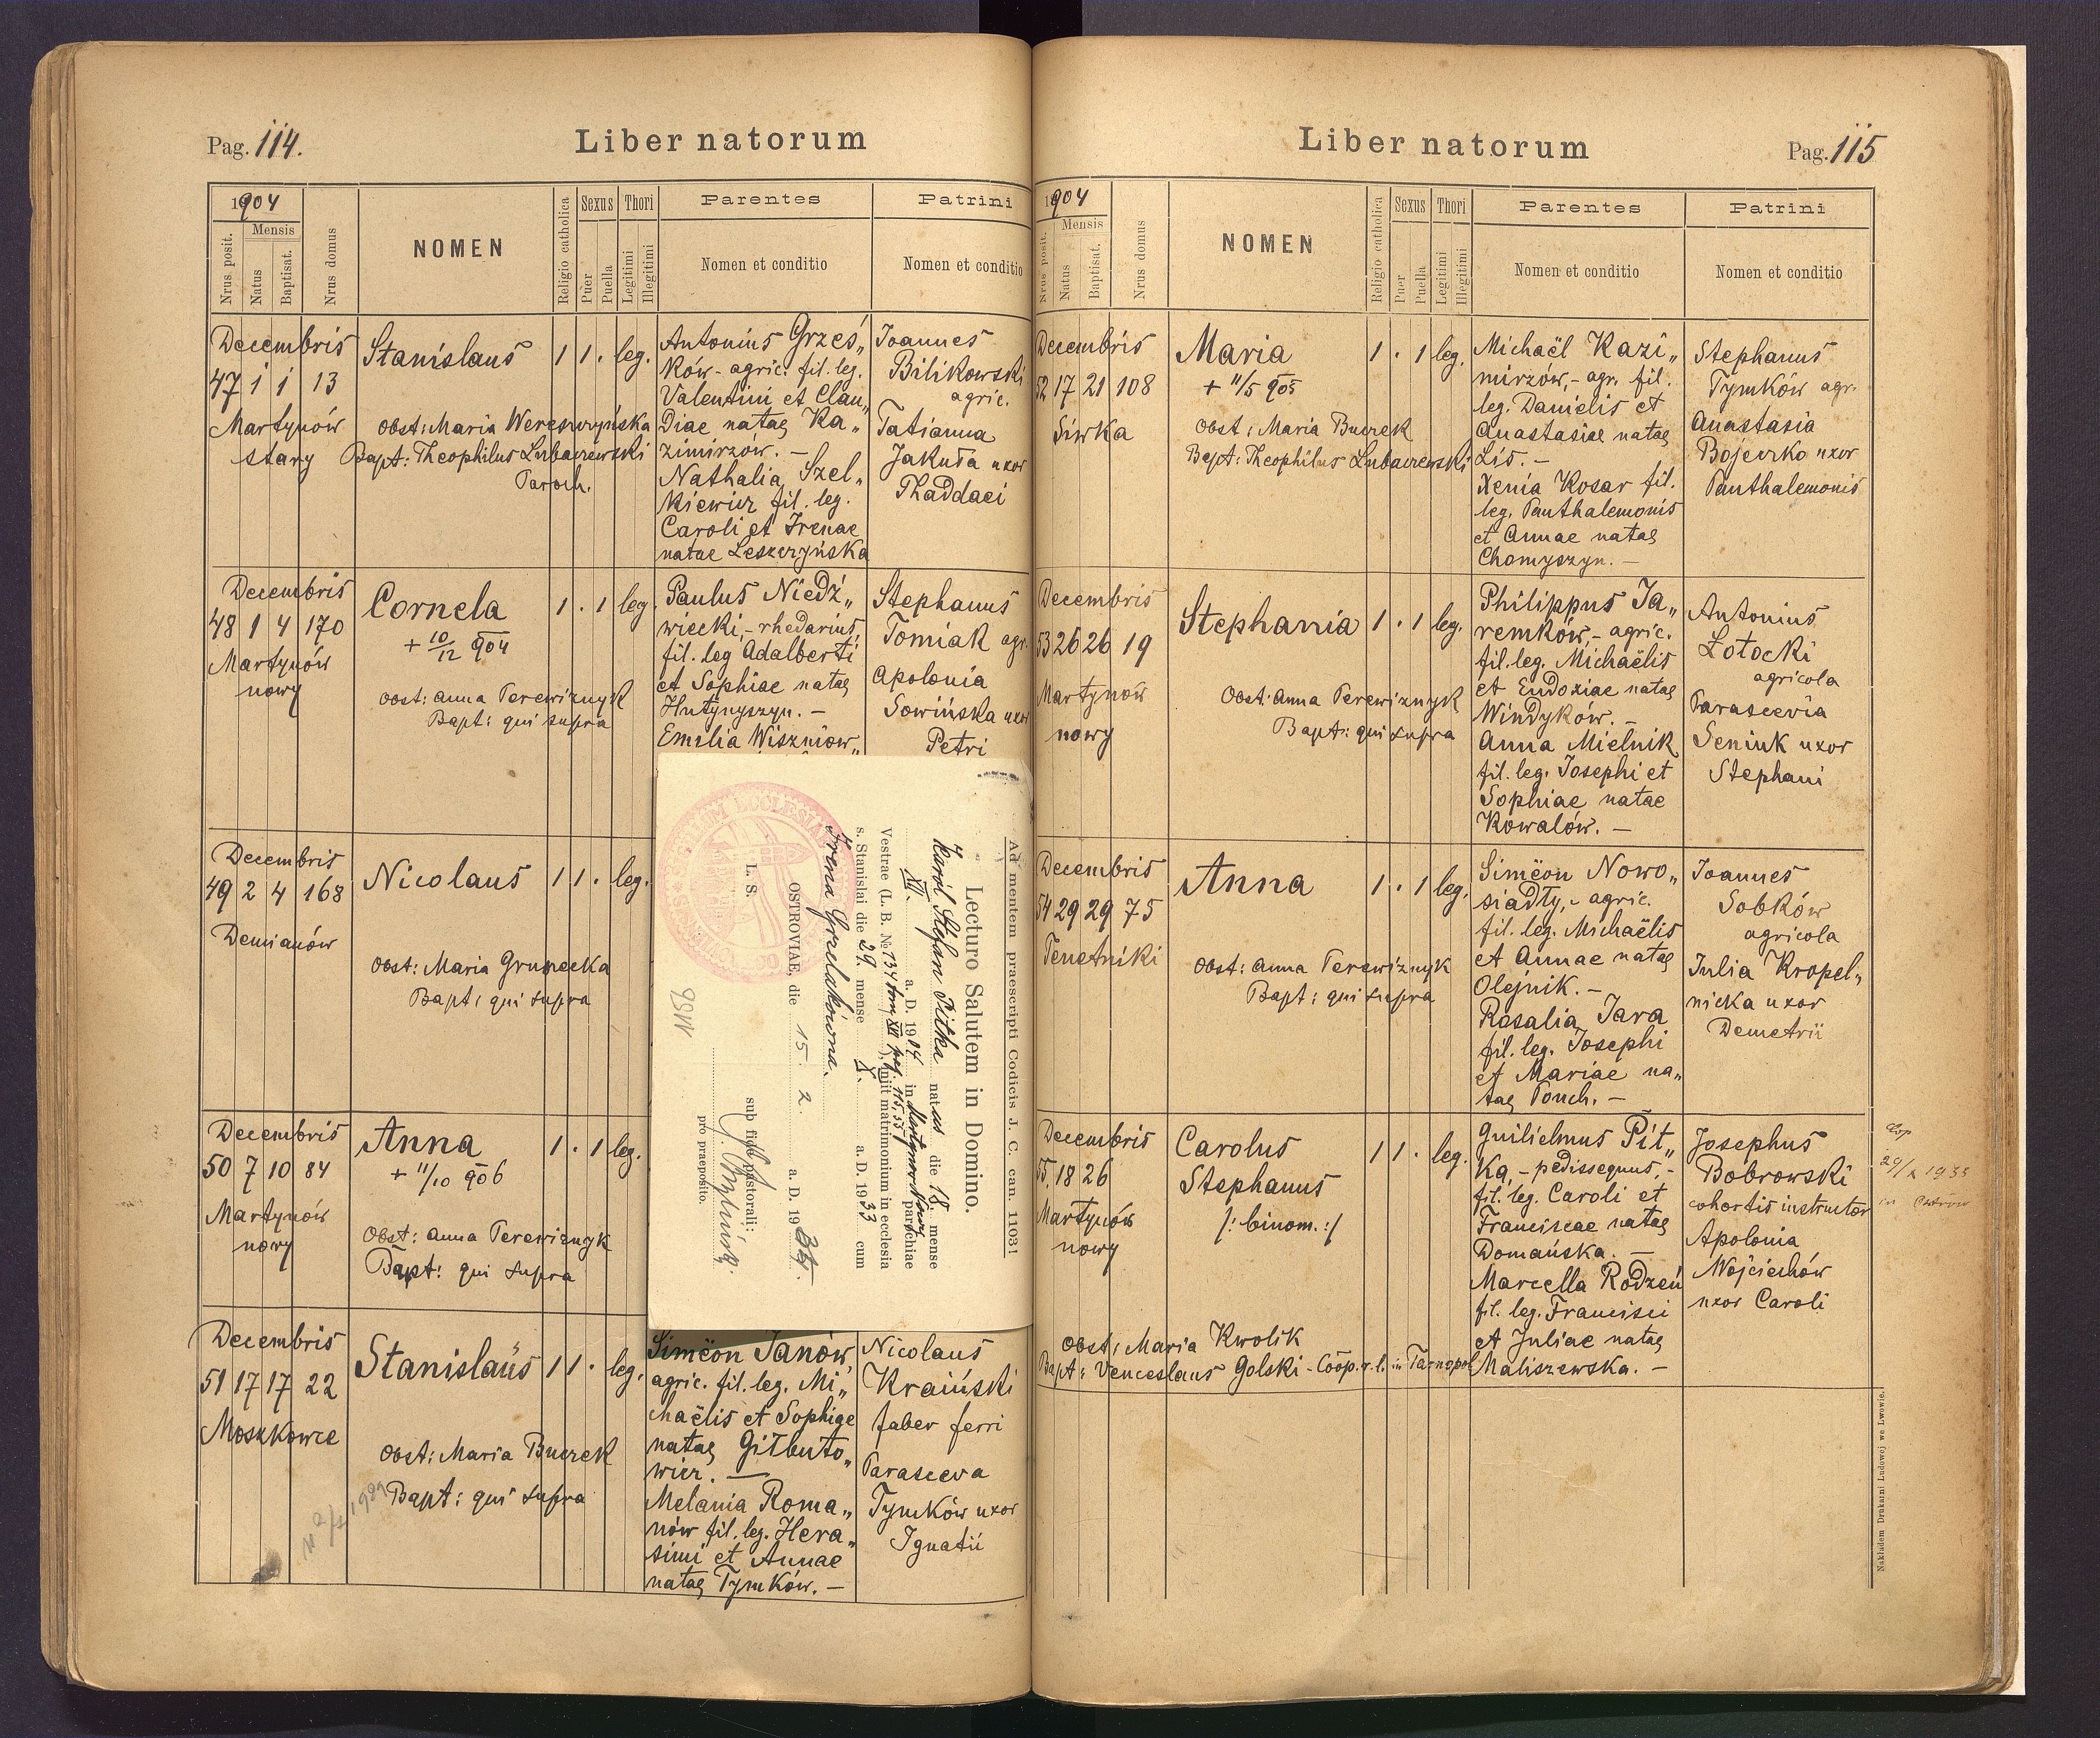 Pag. 114.
Liber natorum
1904
Mensis
Nrus posit.
Natus
Baptisat.
Nrus domus
NOMEN
Religio catholica
Sexus
Puer
Puella
Thori
Legitimi
Illegitimi
Parentes
Nomen et conditio
Patrini
Nomen et conditio
Decembris
47 1 1 13
Martynów
stary
Stanislaus 1 1 . leg.
Obst: Maria Wereszczyńska
Bapt: Theophilus Lubaczewski
Paroch.
Antonius Grześ„
ków - agric. fil. leg.
Valentini et Clau„
diae natae Ka„
zimirzów. -
Nathalia Szel„
kiewicz fil. leg.
Caroli et Irenae
natae Leszczyńska
Joannes
Bilikowski
agric.
Tatianna
Jakuta uxor
Thaddaei
Decembris
48 1 4 170
Martynów
nowy
Cornela 1 . 1 leg.
+ 10/12 904
Obst: Anna Perewiznyk
Bapt: qui supra
Paulus Niedź„
wiecki, - rhedarius,
fil. leg Adalberti
et Sophiae natae
Hutynyszyn. -
Emilia Wiszniow„
Stephanus
Tomiak agr.
Apolonia
Sowińska uxor
Petri
Decembris
49 2 4 168
Demianów
Nicolaus 1 1 . leg.
Obst: Maria Grunecka
Bapt: qui supra
Decembris
50 7 10 84
Martynów
nowy
Anna 1 . 1 leg.
+ 11/10 906
Obst: Anna Perewiznyk
Bapt: qui supra
Decembris
51 17 17 22
Moszkowce
Stanislaus 1 1 . leg.
Obst: Maria Buczek
Bapt: qui supra
Simëon Janów,
agric. fil. leg. Mi„
chaëlis et Sophiae
natae Gitbuto„
wicz. -
Melania Roma„
nów fil. leg. Hera„
simi et Annae
natae Tymków. -
Nicolaus
Kraiński
faber ferri
Parasceva
Tymków uxor
Ignatii
Ad mentem praescripti Codicis J. C. can. 1103
Lecturo Salutem in Domino.
Karol Stefan Pitka natus die 18. mense
XII. a. D. 1904 in Martynów Nowy parochiae
Vestrae (L. B. № 134 tom XII pag. 115, 55) iniit matrimonium in ecclesia
s. Stanislai die 29. mense X. a. D. 1933 cum
Irena Grzelakówna.
OSTROVIAE, die 15. 2. a. D. 1934.
L. S.
sub fide pastorali:
pro praeposito.
Liber natorum
Pag. 115
1904
Mensis
Nrus posit.
Natus
Baptisat.
Nrus domus
NOMEN
Religio catholica
Sexus
Puer
Puella
Thori
Legitimi
Illegitimi
Parentes
Nomen et conditio
Patrini
Nomen et conditio
Decembris
52 17 21 108
Siwka
Maria 1 . 1 leg.
+ 11/5 905
Obst: Maria Buczek
Bapt: Theophilus Lubaczewski
Michaël Kazi„
mirzów, - agr. fil.
leg. Danielis et
Anastasiae natae
Lis. -
Xenia Kosar fil.
leg. Panthalemonis
et Annae natae
Chomyszyn. -
Stephanus
Tymków agr.
Anastasia
Bojeczko uxor
Panthalemonis
Decembris
53 26 26 19
Martynów
nowy
Stephania 1 . 1 leg.
Obst: Anna Perewiznyk
Bapt: qui supra
Philippus Ja„
remków, - agric.
fil. leg. Michaëlis
et Eudoxiae natae
Windyków. -
Anna Mielnik
fil. leg. Josephi et
Sophiae natae
Kowalów. -
Antonius
Łotocki
agricola
Parascevia
Seniuk uxor
Stephani
Decembris
54 29 29 75
Tenetniki
Anna 1 . 1 leg.
Obst: Anna Perewiznyk
Bapt: qui supra
Simëon Nowo„
siadły, - agric.
fil. leg. Michaëlis
et Annae natae
Olejnik. -
Rosalia Jara
fil. leg. Josephi
et Mariae na„
tae Pouch. -
Joannes
Sobków
agricola
Julia Kropel„
nicka uxor
Demetrii
Decembris
55. 18 26
Martynów
nowy
Carolus
Stephanus
/: binom. :/
1 1 . leg.
Obst: Maria Kwolik
Bapt: Venceslaus Golski - Coop. r. l. in Tarnopol
Guilielmus Pit„
ka, - pedissequus, -
fil. leg. Caroli et
Franciscae natae
Domańska. -
Marcella Rodzeń
fil. leg. Francisci
et Juliae natae
Maliszewska. -
Josephus
Bobrowski
cohortis instructor
Apolonia
Wojciechów
uxor Caroli
Cop
29/X 1933
in Ostrów
Nakładem Drukarni Ludowej we Lwowie.